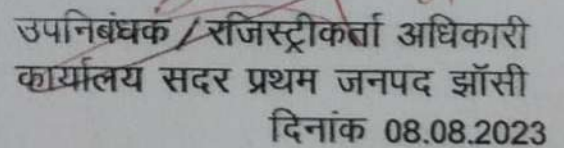 उपनिबंधक / रजिस्ट्रीकर्ता अधिकारी
कार्यालय सदर प्रथम जनपद झॉसी
दिनांक 08.08.2023